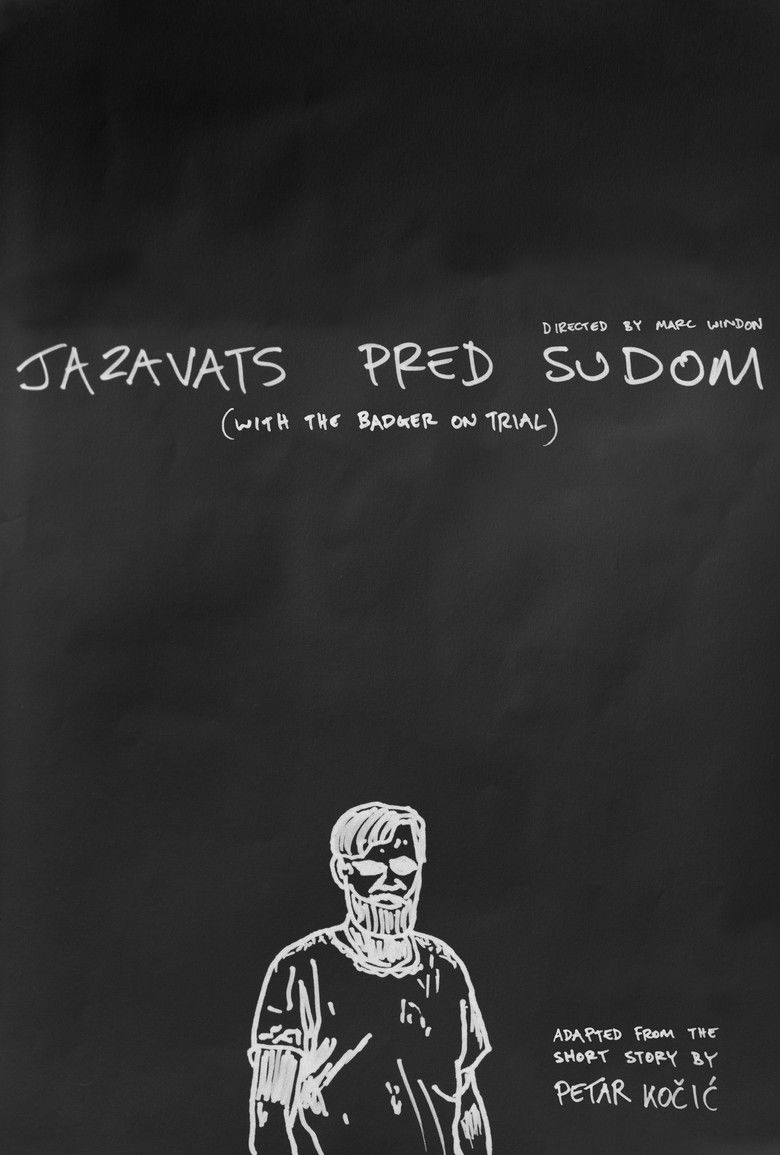 DIRECTED BY MARC WINDON
JAZAVATS PRED SUDOM
(WITH THE BADGER ON TRIAL)
ADAPTED FROM THE
SHORT STORY BY
PETAR KOČIĆ